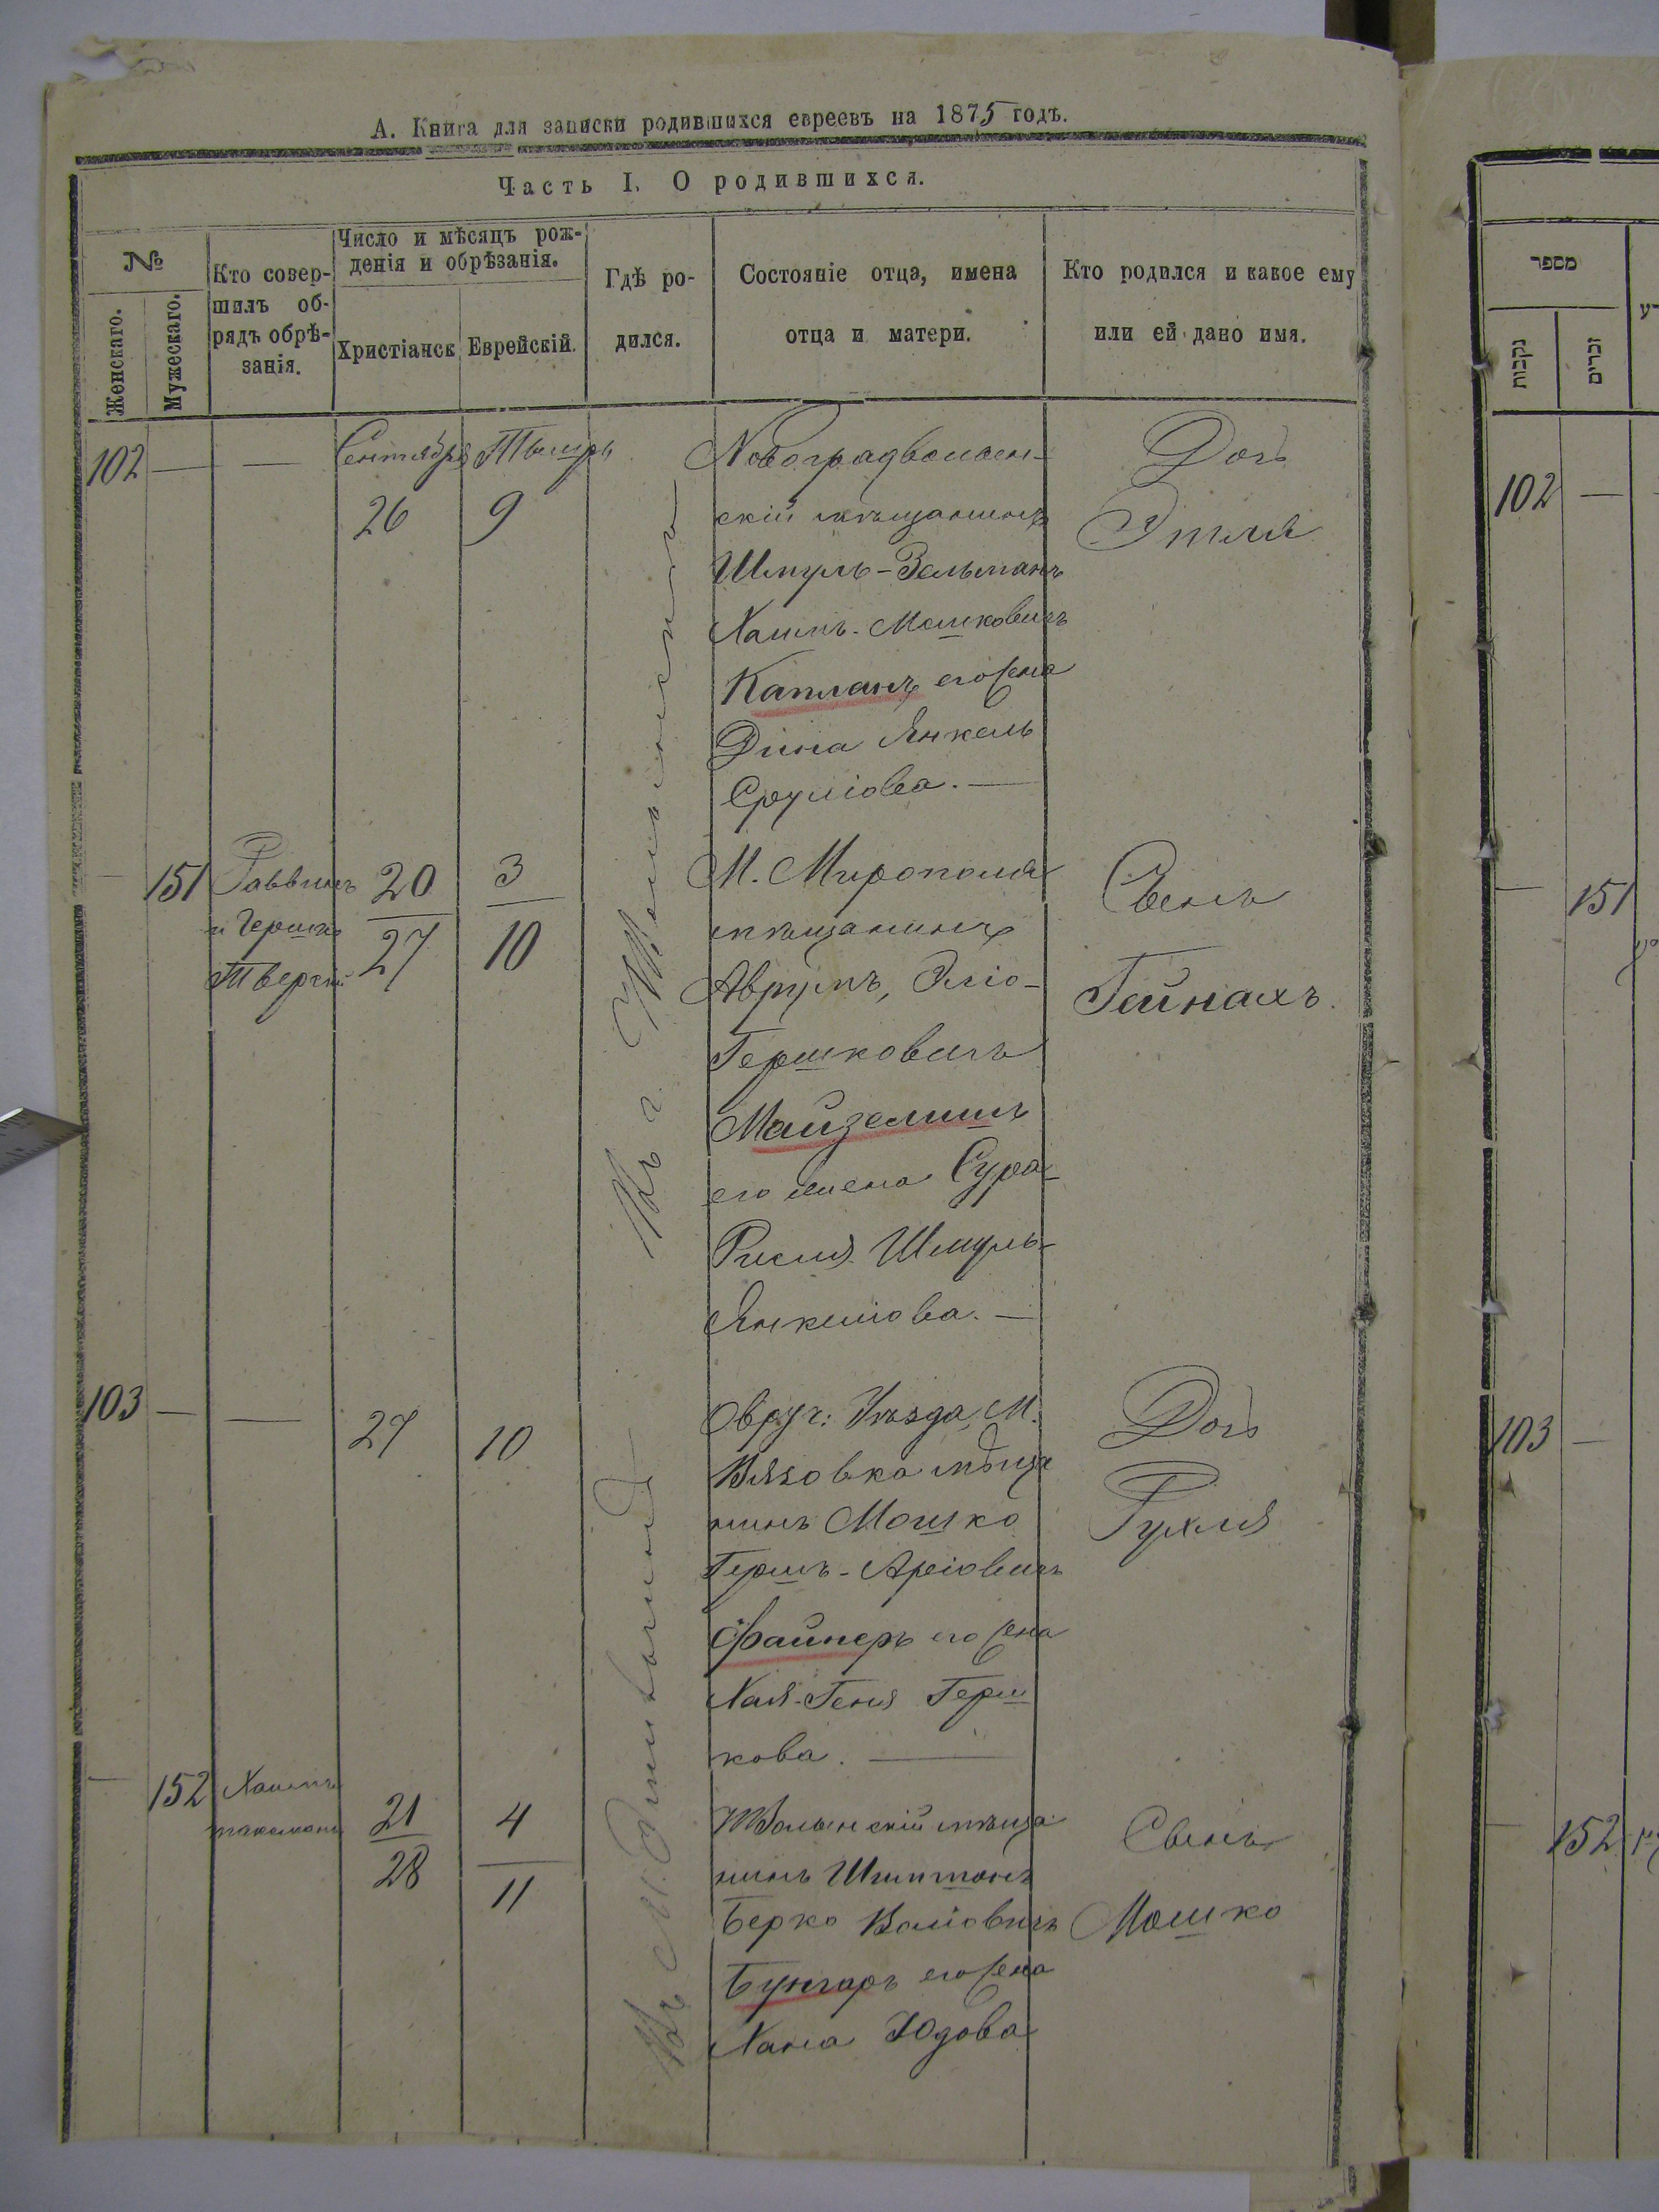 А. Книга для записки родившихся евреевъ на 1875 годъ.
Часть I. О родившихся.
№
Женскаго.
Мужескаго.
Кто совер-
шилъ об-
рядъ обрѣ-
занія.
Число и мѣсяцъ рож-
денія и обрѣзанія.
Христіанск
Еврейскій.
Гдѣ ро-
дился.
Состояніе отца, имена
отца и матери.
Кто родился и какое ему
или ей дано имя.
102 — — Сентября
26 9
Новоградволын-
скій мѣщанинъ
Шмуль-Зельманъ
Хаимъ-Мошковичъ
Капланъ его жена
Дина Янкель
Срулiова. —
Дочь
Этля
Въ г. Житомирѣ
— 151 Раввинъ
и Гершко
Тверскій
20
27
3
10
М. Мирополя
мѣщанинъ
Аврумъ, Эліо-
Гершковичъ
Майзелишъ
его жена Сура-
Рисля Шмуль-
Янкеліова. —
Сынъ
Гейнахъ.
103 — — 27 10
Овруч: Уѣзда, М.
Вязовка мѣща
нинъ Мошко
Гершъ-Аріовичъ
Файнеръ его жена
Хая-Геня Герш
кова. —
Дочь
Рухля
— 152 Хаимъ
21
28
4
11
Волынскій мѣща
нинъ
Берко Воліовичъ
Бунгаръ его жена
Хана Юдова
Сынъ
Мошко
מספר
נקבות
זכרים
102 —
— 151
103 —
— 152